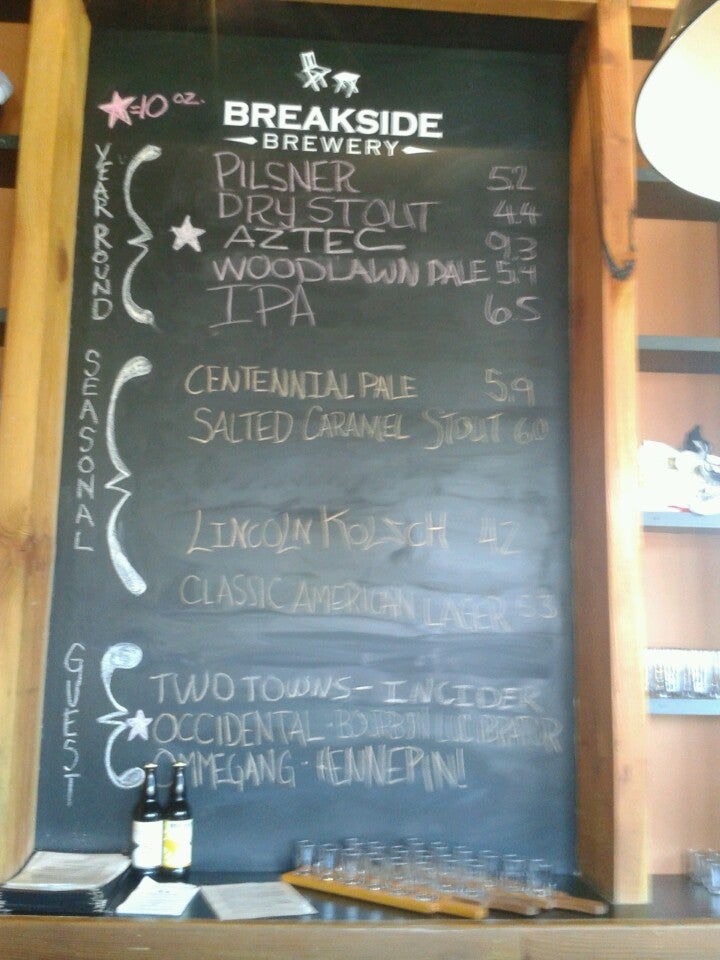 ★=10 oz.
BREAKSIDE
BREWERY
YEAR ROUND
PILSNER 5.2
DRY STOUT 4.4
★ AZTEC 9.3
WOODLAWN PALE 5.4
IPA 6.5
SEASONAL
CENTENNIAL PALE 5.9
SALTED CARAMEL STOUT 6.0
LINCOLN KOLSCH 4.2
CLASSIC AMERICAN LAGER 5.3
GUEST
TWO TOWNS - INCIDER
★ OCCIDENTAL - BOURBON LUCUBRATOR
OMMEGANG - HENNEPIN!!